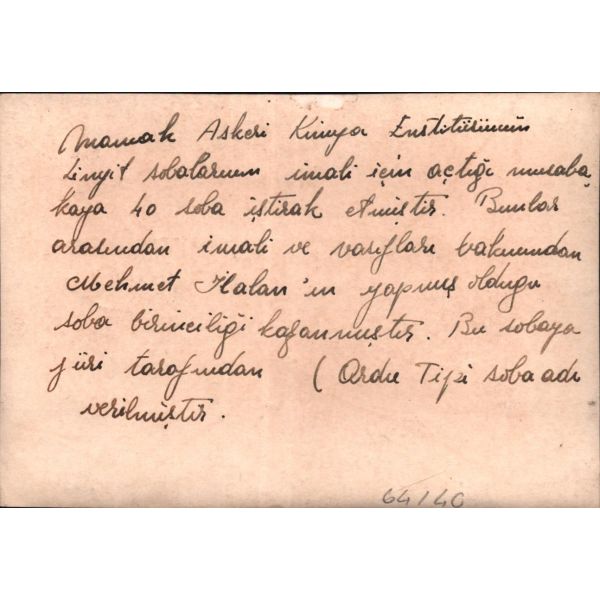 Mamak Askeri Kimya Enstitüsünün
Linyit sobalarının imali için açtığı musaba
kaya 40 soba iştirak etmiştir. Bunlar
arasından imali ve vasıfları bakımından
Mehmet Halan'ın yapmış olduğu
soba birinciliği kazanmıştır. Bu sobaya
jüri tarafından (Ordu Tipi soba adı
verilmiştir.
64/40